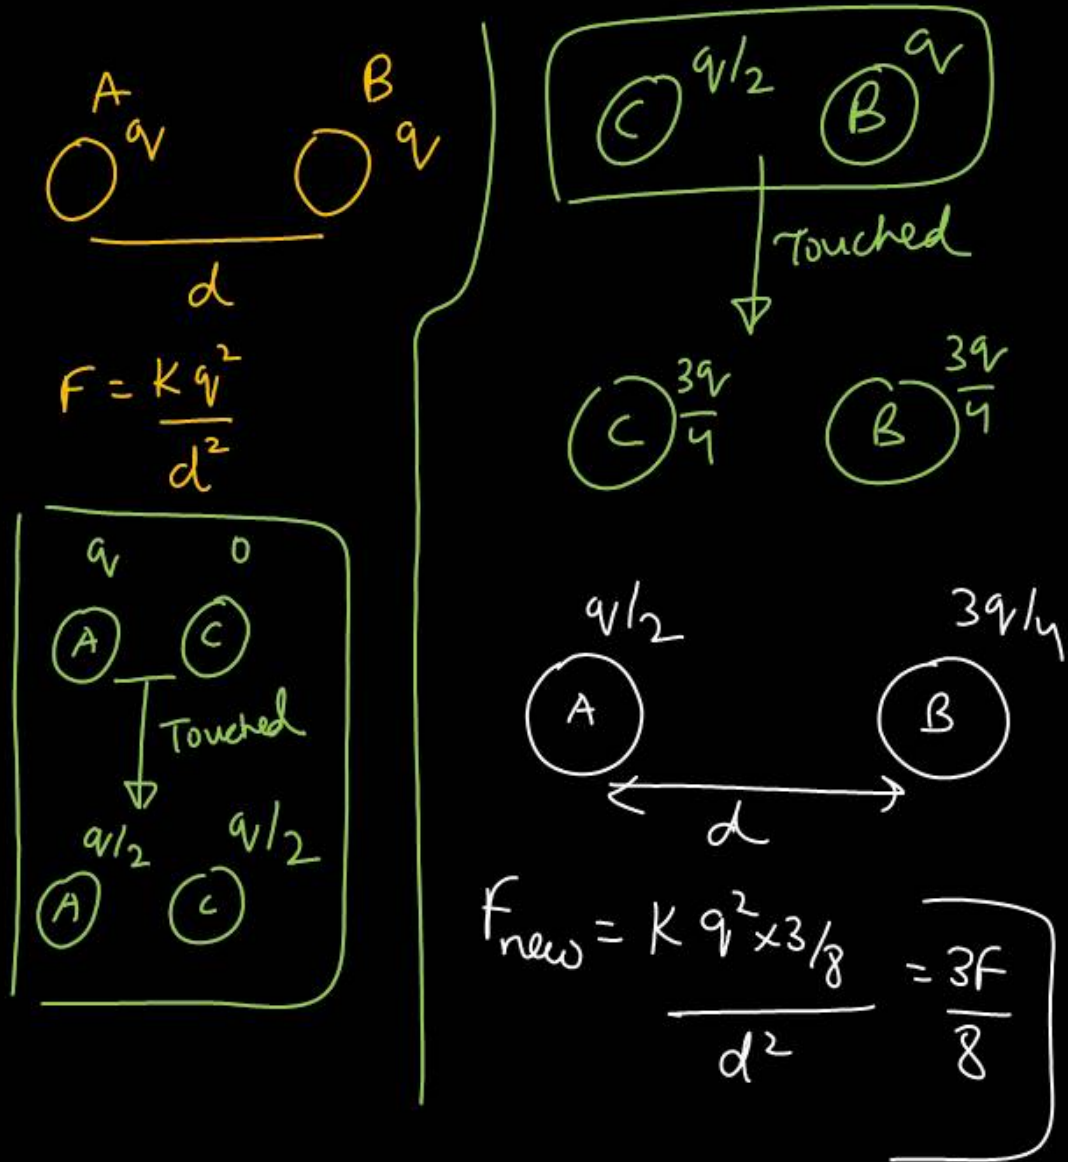 A B
q q
d
F = Kq²/d²
q 0
A C
Touched
q/2 q/2
A C
q/2 q
C B
Touched
3q/4 3q/4
C B
q/2 3q/4
A B
d
Fnew = Kq²×3/8 / d² = 3F/8